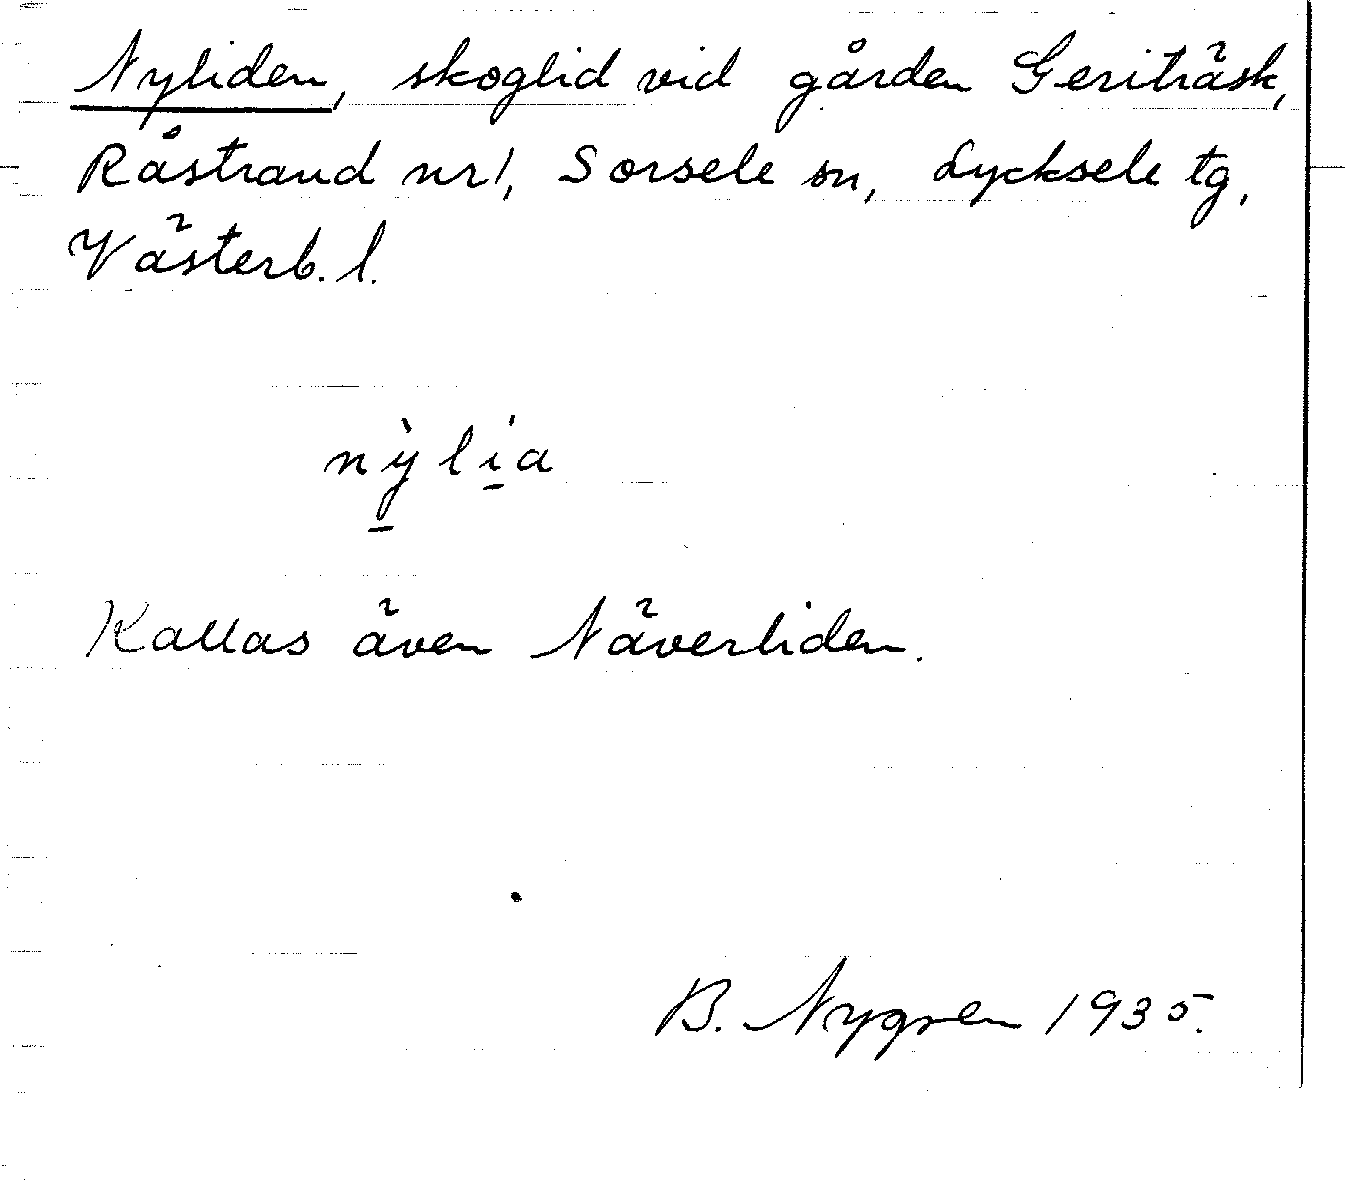 Nyliden, skoglid vid gården Geriträsk,
Råstrand nr 1, Sorsele sn, Lycksele tg,
Västerb. l.
nỳ̱lí̱a
Kallas även Näverliden.
B. Nygren 1935.